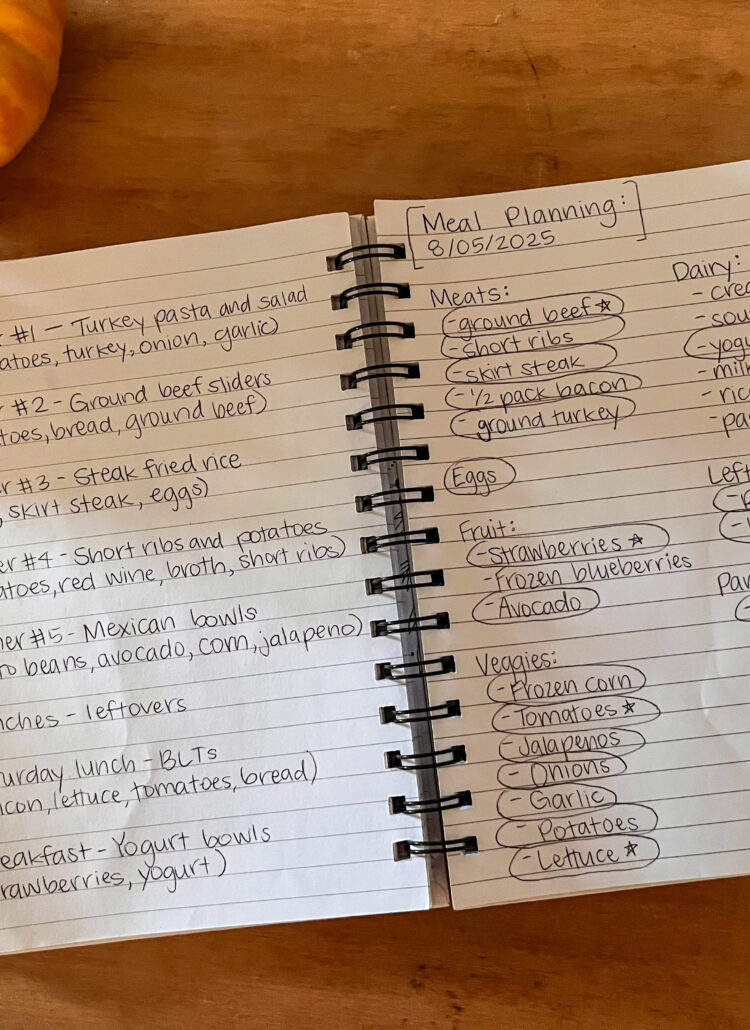 #1 - Turkey pasta and salad
turkey, onion, garlic)
#2 - Ground beef sliders
bread, ground beef)
#3 - Steak fried rice
skirt steak, eggs)
#4 - Short ribs and potatoes
red wine, broth, short ribs)
#5 - Mexican bowls
beans, avocado, corn, jalapeno)
- leftovers
lunch - BLTs
lettuce, tomatoes, bread)
- Yogurt bowls
yogurt)
[Meal Planning:
8/05/2025]
Meats:
- ground beef ☆
- short ribs
- skirt steak
- 1/2 pack bacon
- ground turkey
Eggs
Fruit:
- Strawberries ☆
- Frozen blueberries
- Avocado
Veggies:
- Frozen corn
- Tomatoes ☆
- Jalapenos
- Onions
- Garlic
- Potatoes
- Lettuce ☆
Dairy: